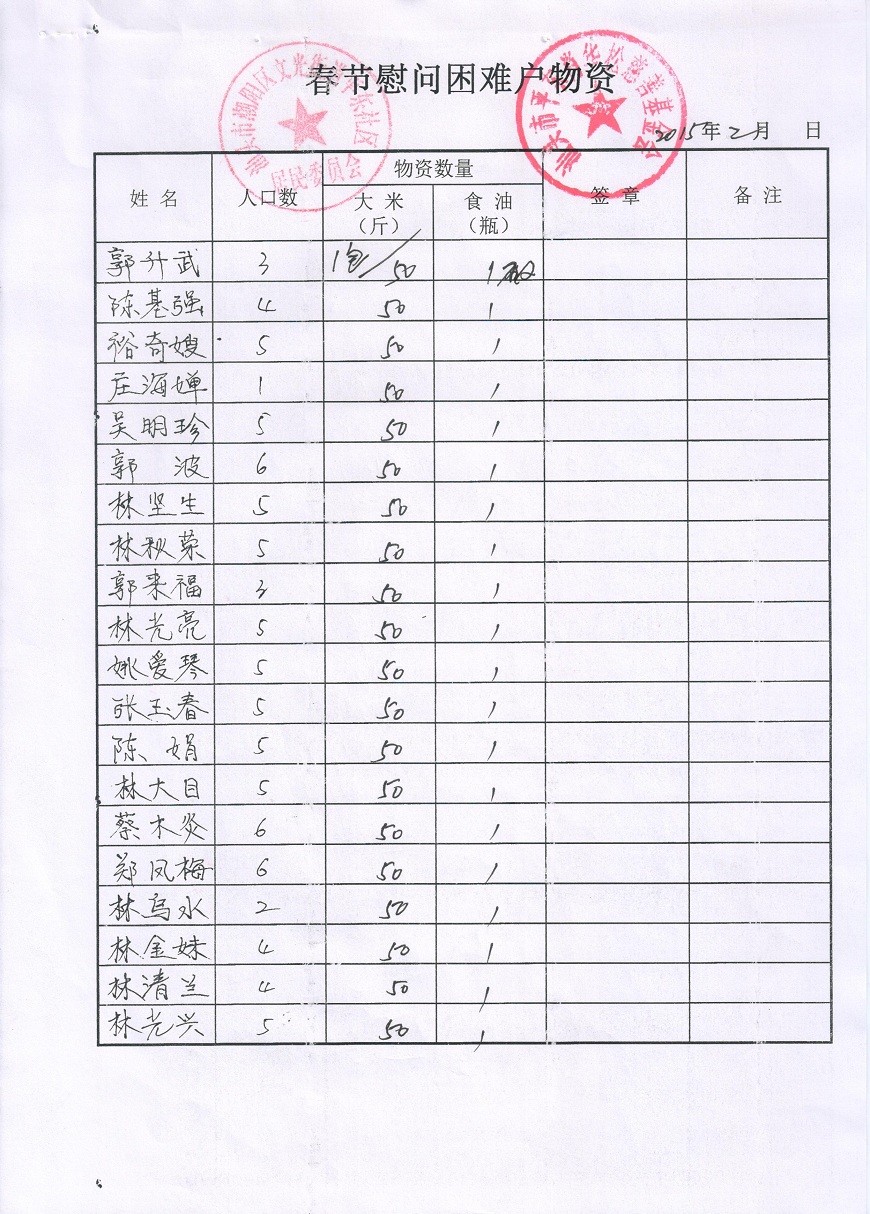 春节慰问困难户物资
2015年2月 日
姓名 人口数 物资数量 签章 备注
大米（斤） 食油（瓶）
郭升武 3 1包/50 1瓶
陈基强 4 50 1
裕奇嫂 5 50 1
庄海婵 1 50 1
吴明珍 5 50 1
郭波 6 50 1
林坚生 5 50 1
林秋荣 5 50 1
郭来福 3 50 1
林光亮 5 50 1
姚爱琴 5 50 1
张玉春 5 50 1
陈娟 5 50 1
林大目 5 50 1
蔡木炎 6 50 1
郑凤梅 6 50 1
林乌水 2 50 1
林金妹 4 50 1
林清兰 4 50 1
林光兴 5 50 1
汕头市潮阳区文光街道平东社区
居民委员会
慈善基金会